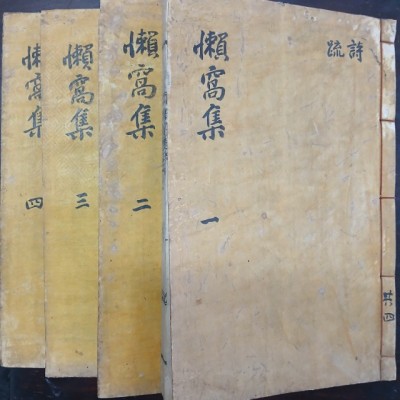 詩
疏
懶窩集 一
共四
懶窩集 二
懶窩集 三
懶窩集 四